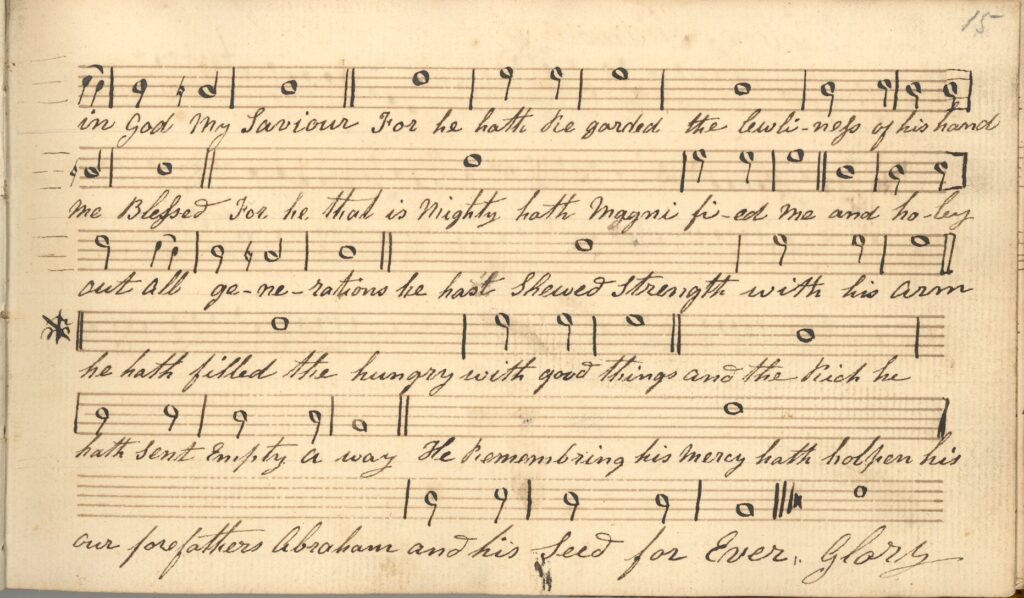 15
in God My Saviour For he hath Re garded the lowli-ness of his hand
me Blessed For he that is Mighty hath Magni fi-ed me and ho-ley
out all ge-ne-rations he hast Shewed Strength with his arm
he hath filled the hungry with good things and the Rich he
hath sent Empty a way He Remembring his Mercy hath holpen his
our forefathers Abraham and his Seed for Ever. Glory